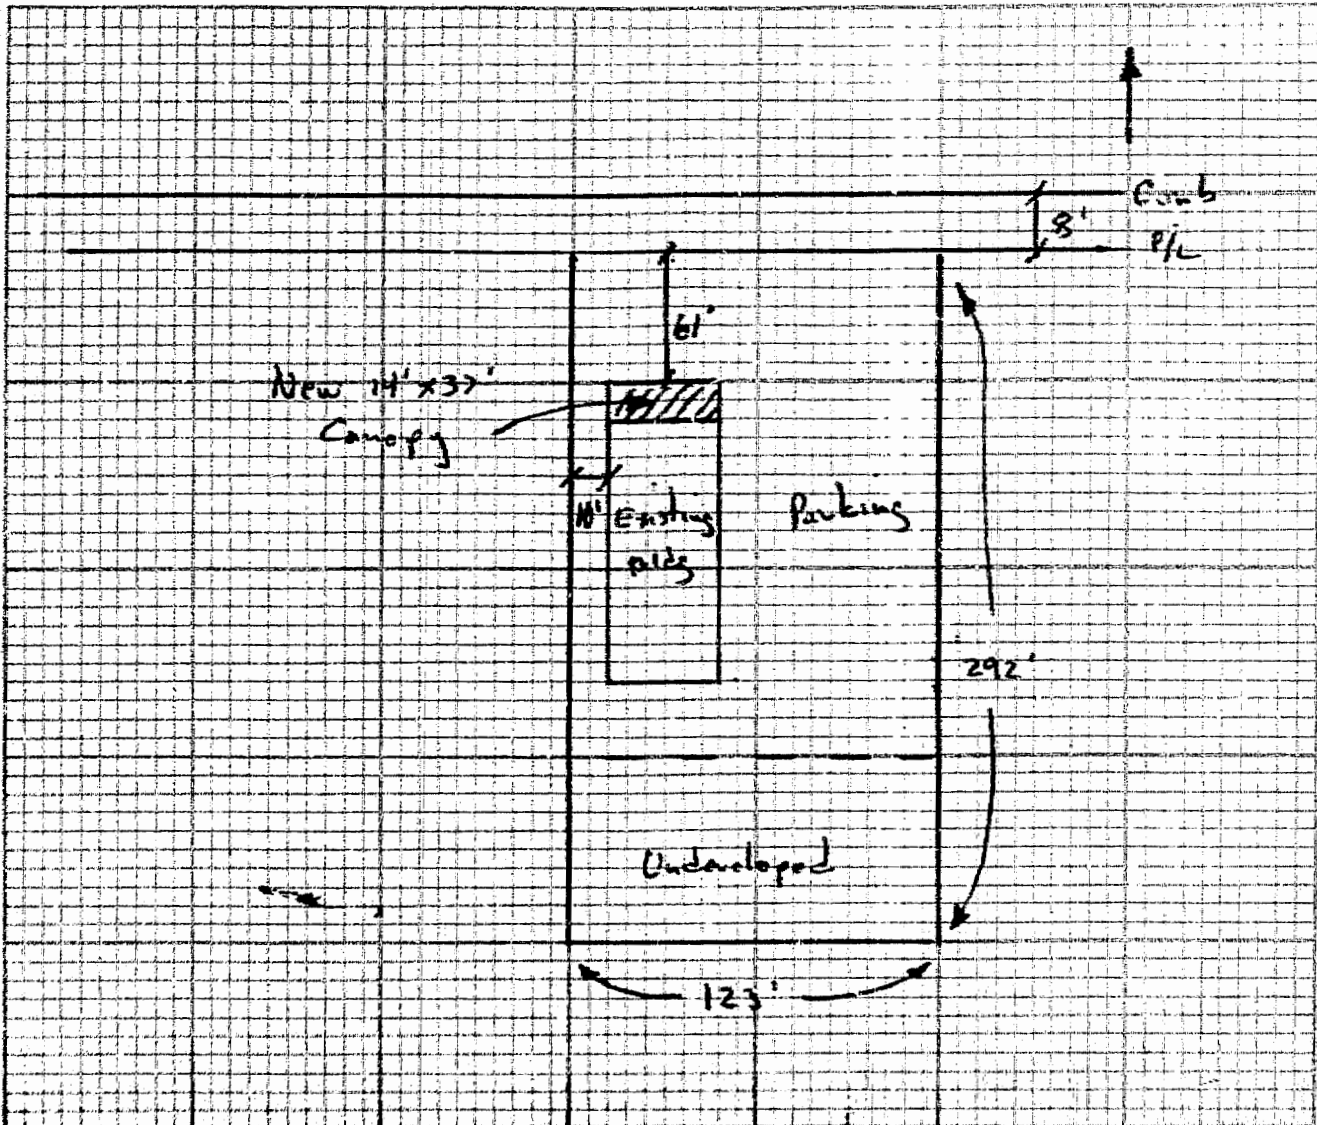 Curb
8'
P/L
61'
New 14' x 37'
Canopy
10' Existing
Bldg
Parking
292'
Undeveloped
123'